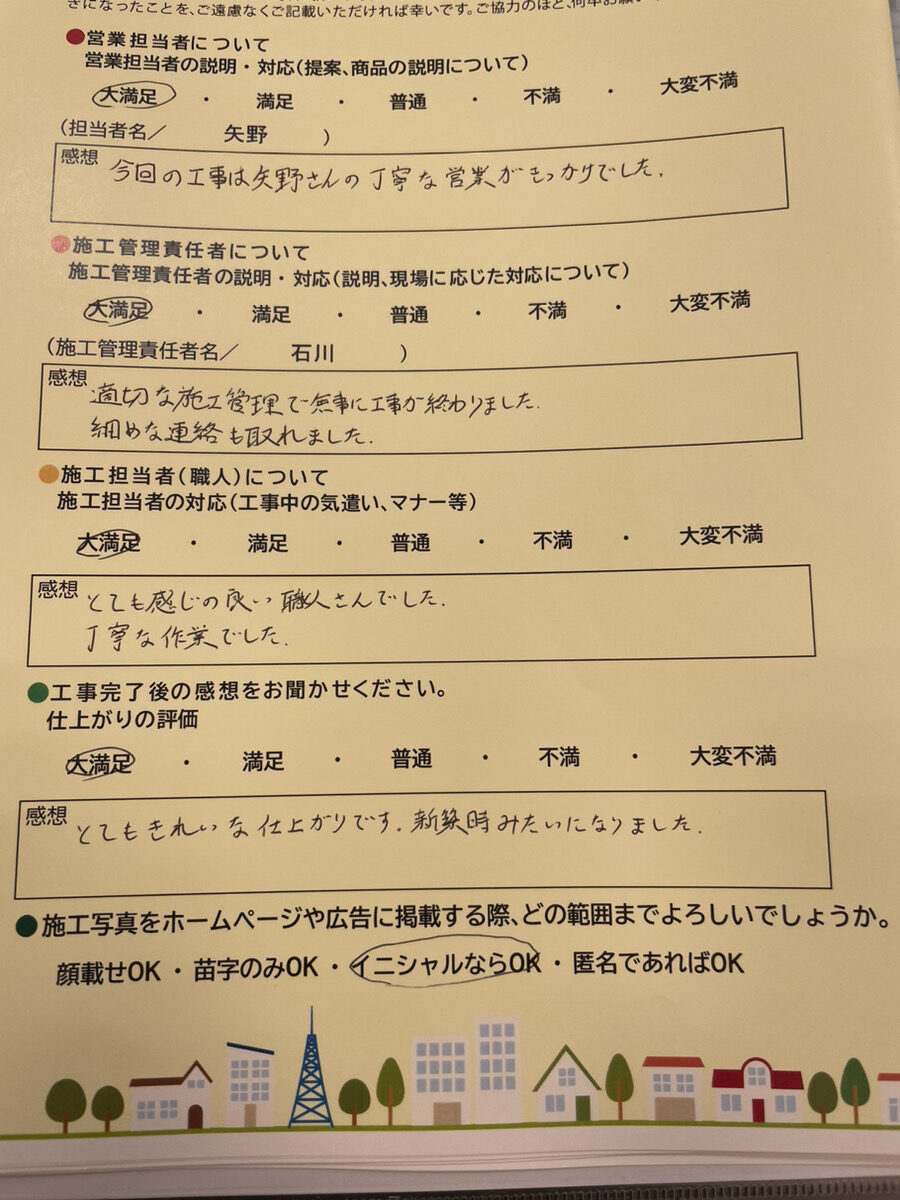 きになったことを、ご遠慮なくご記載いただければ幸いです。ご協力のほど、何卒お願い
●営業担当者について
営業担当者の説明・対応(提案、商品の説明について)
大満足 ・ 満足 ・ 普通 ・ 不満 ・ 大変不満
(担当者名／ 矢野 )
感想
今回の工事は矢野さんの丁寧な営業がきっかけでした.
●施工管理責任者について
施工管理責任者の説明・対応(説明、現場に応じた対応について)
大満足 ・ 満足 ・ 普通 ・ 不満 ・ 大変不満
(施工管理責任者名／ 石川 )
感想
適切な施工管理で無事に工事が終わりました.
細めな連絡も取れました.
●施工担当者(職人)について
施工担当者の対応(工事中の気遣い、マナー等)
大満足 ・ 満足 ・ 普通 ・ 不満 ・ 大変不満
感想
とても感じの良い職人さんでした.
丁寧な作業でした.
●工事完了後の感想をお聞かせください。
仕上がりの評価
大満足 ・ 満足 ・ 普通 ・ 不満 ・ 大変不満
感想
とてもきれいな仕上がりです.新築時みたいになりました.
●施工写真をホームページや広告に掲載する際、どの範囲までよろしいでしょうか。
顔載せOK・苗字のみOK・イニシャルならOK・匿名であればOK